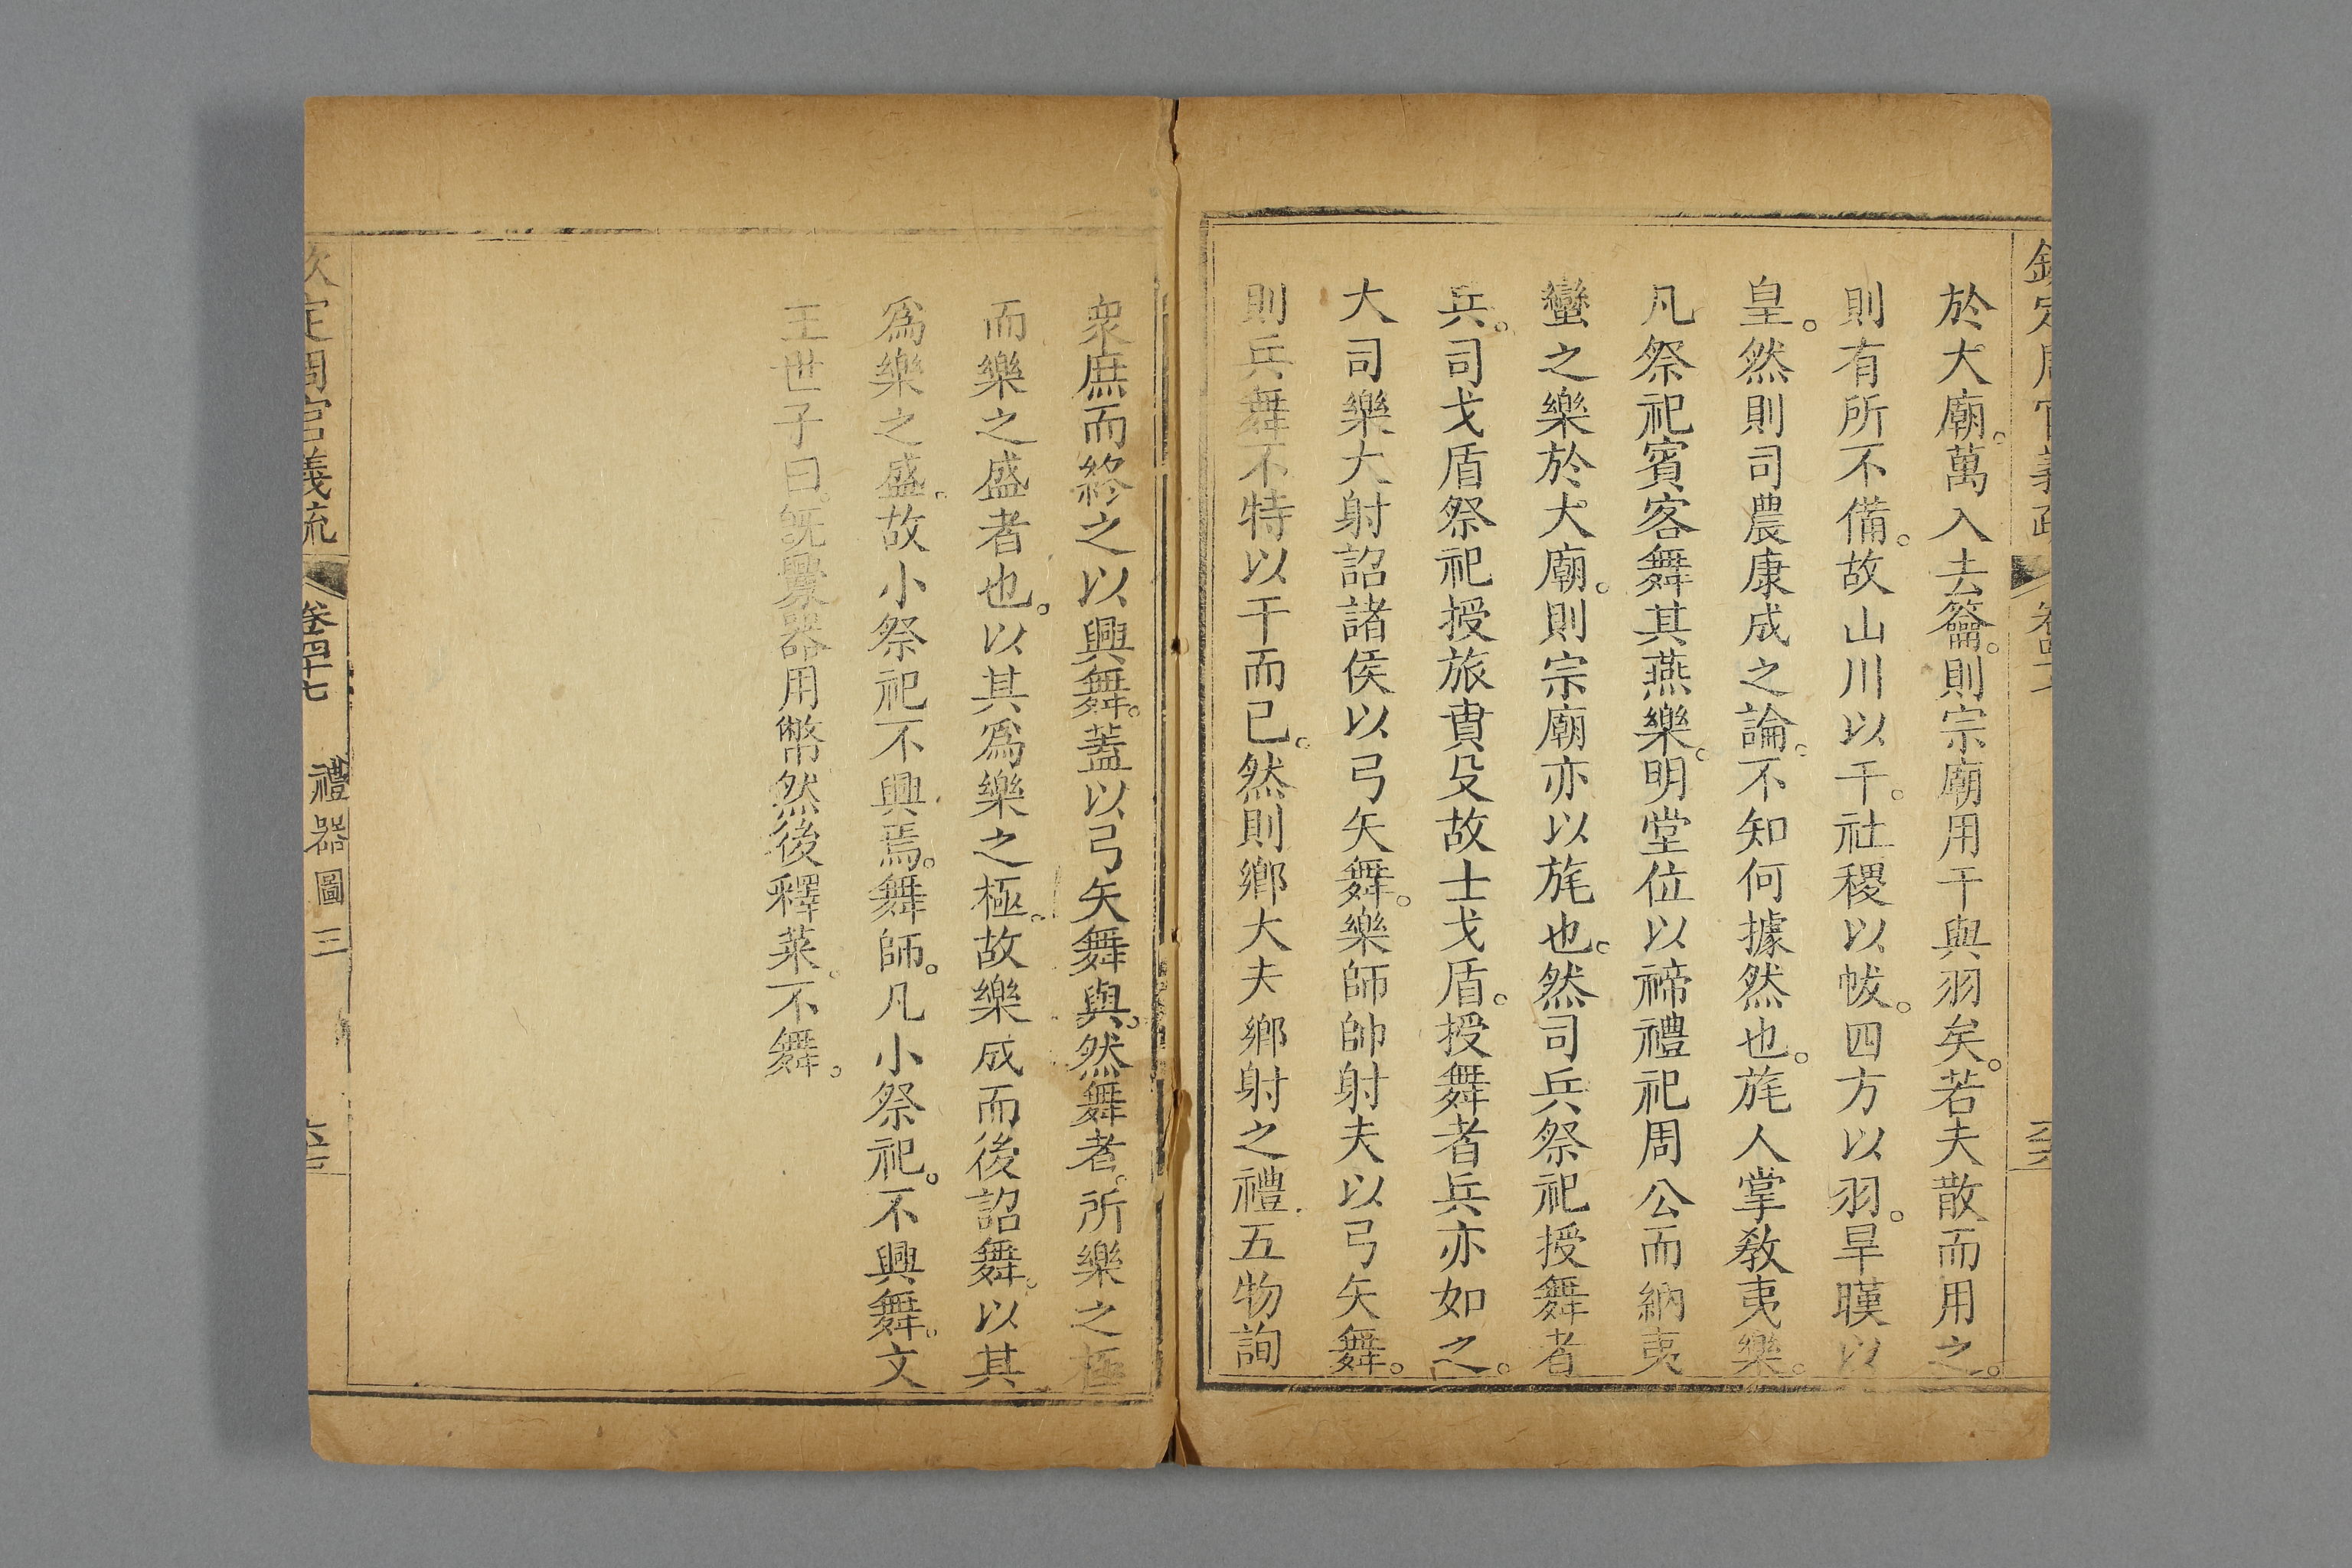 於大廟。萬入去籥。則宗廟用干與羽矣。若夫散而用之。
則有所不備。故山川以干。社稷以帗。四方以羽。旱暵以
皇。然則司農康成之論。不知何據然也。旄人掌教夷樂。
凡祭祀賓客舞其燕樂。明堂位以禘禮祀周公而納夷
蠻之樂於大廟。則宗廟亦以旄也。然司兵祭祀授舞者
兵。司戈盾祭祀授旅賁殳故士戈盾。授舞者兵亦如之。
大司樂大射詔諸侯以弓矢舞。樂師帥射夫以弓矢舞。
則兵舞不特以干而已。然則鄉大夫鄉射之禮。五物詢
衆庶而終之以興舞。蓋以弓矢舞與。然舞者。所樂之極
而樂之盛者也。以其爲樂之極。故樂成而後詔舞。以其
爲樂之盛。故小祭祀不興焉。舞師。凡小祭祀。不興舞。文
王世子曰。旣釁器用幣然後釋菜。不舞。
欽定周官義疏
卷四十七
禮器圖三